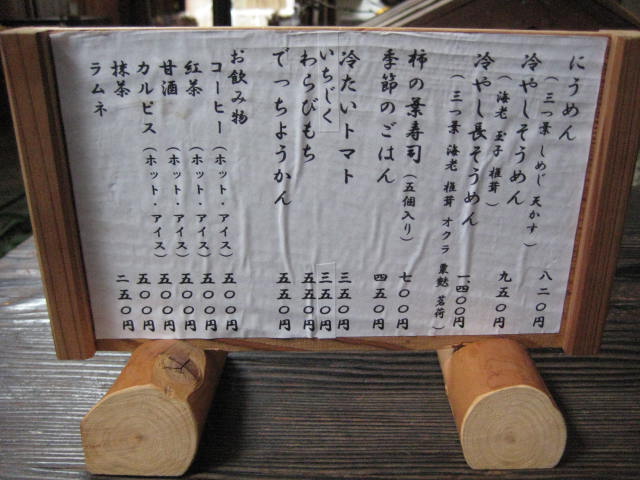 にうめん 八二〇円
（三つ葉 しめじ 天かす）
冷やしそうめん 九五〇円
（海老 玉子 椎茸）
冷やし長そうめん 一四〇〇円
（三つ葉 海老 椎茸 オクラ 茗荷）
柿の葉寿司（五個入り） 七〇〇円
季節のごはん 四五〇円
冷たいトマト 三五〇円
いちじく 三五〇円
わらびもち 五五〇円
でっちようかん 五五〇円
お飲み物
コーヒー（ホット・アイス） 五〇〇円
紅茶（ホット・アイス） 五〇〇円
甘酒（ホット・アイス） 五〇〇円
カルピス（ホット・アイス） 五〇〇円
抹茶 五〇〇円
ラムネ 二五〇円